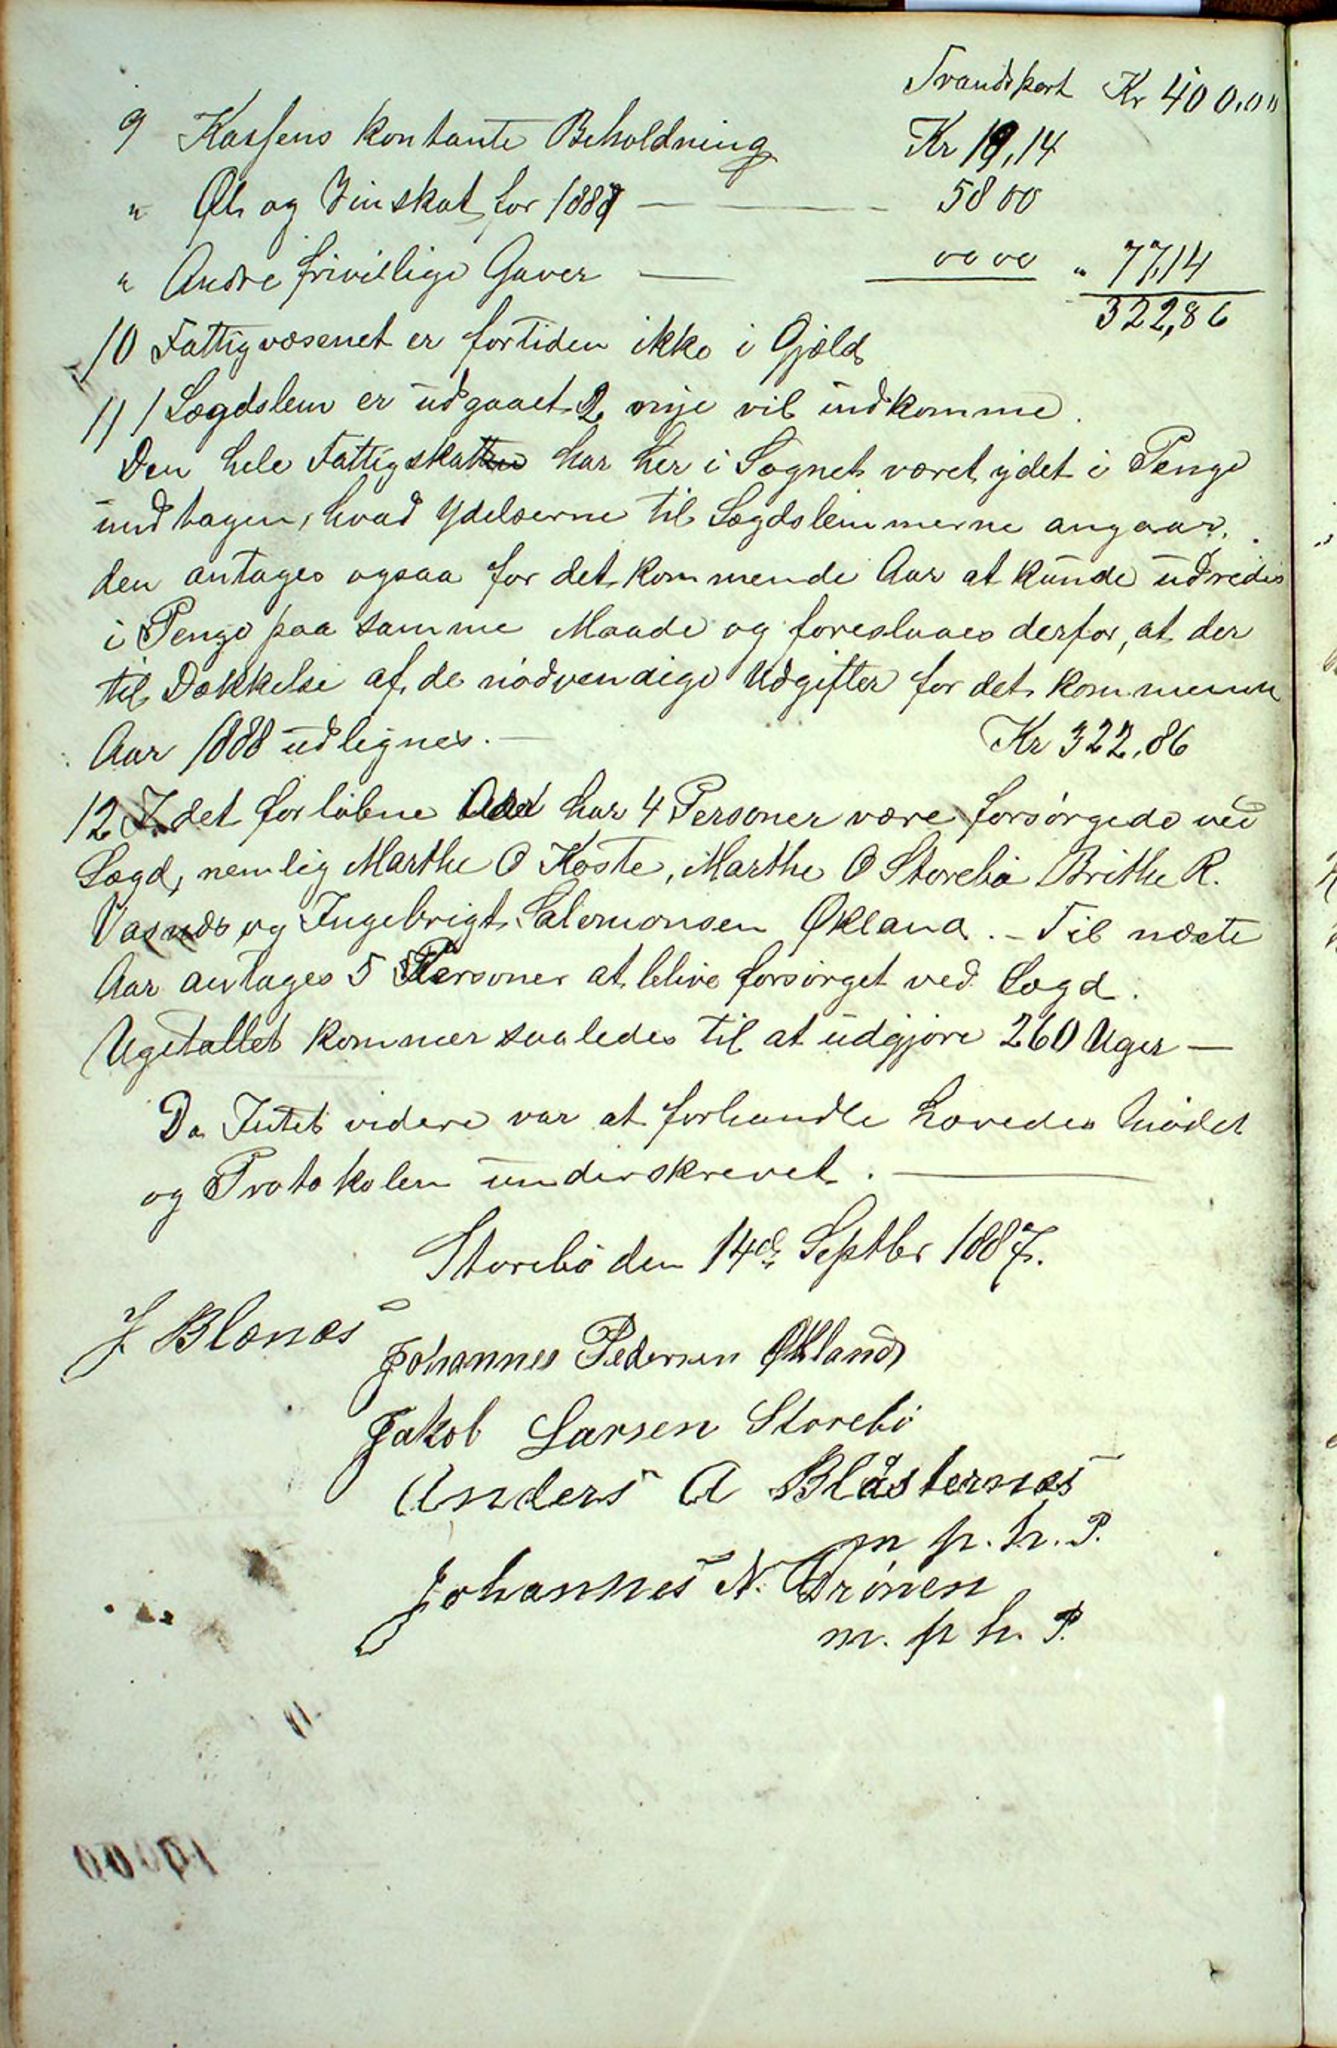 Transport Kr 400.00
9 Kassens kontante Beholdning Kr 19,14
" Øl og Vinskat for 1887 — — 58 00
" Andre frivillige Gaver — 00 00 " 77,14
322,86
10 Fattigvæsenet er fortiden ikke i Gjæld
11 1 Lægdslem er udgaaet 2 nye vil indkomme.
Den hele Fattigskatten har her i Sognet været ydet i Penge
undtagen, hvad Ydelserne til Lægdslemmerne angaar,
den antages ogsaa for det kommende Aar at kunde udredes
i Penge paa samme Maade og foreslaaes derfor, at der
til Dækkelse af de nødvendige Udgifter for det kommende
Aar 1888 udlignes. — Kr 322,86
12 I det forløbne Aar har 4 Personer være forsørgede ved
Lægd, nemlig Marthe O Koste, Marthe O Storebø Brithe R.
Vasnæs og Ingebrigt Salomonsen Økland. - Til næste
Aar antages 5 Personer at blive forsørget ved Lægd.
Ugetallet kommer saaledes til at udgjøre 260 Uger —
Da Intet videre var at forhandle hævedes Mødet
og Protokolen underskrevet. —
Storebø den 14de Septbr 1887.
J. Blænæs
Johannes Pedersen Økland
Jakob Larsen Storebø
Anders A Blåsternæs
m p. h. P.
Johannes N. Grønen
m. p h. P.